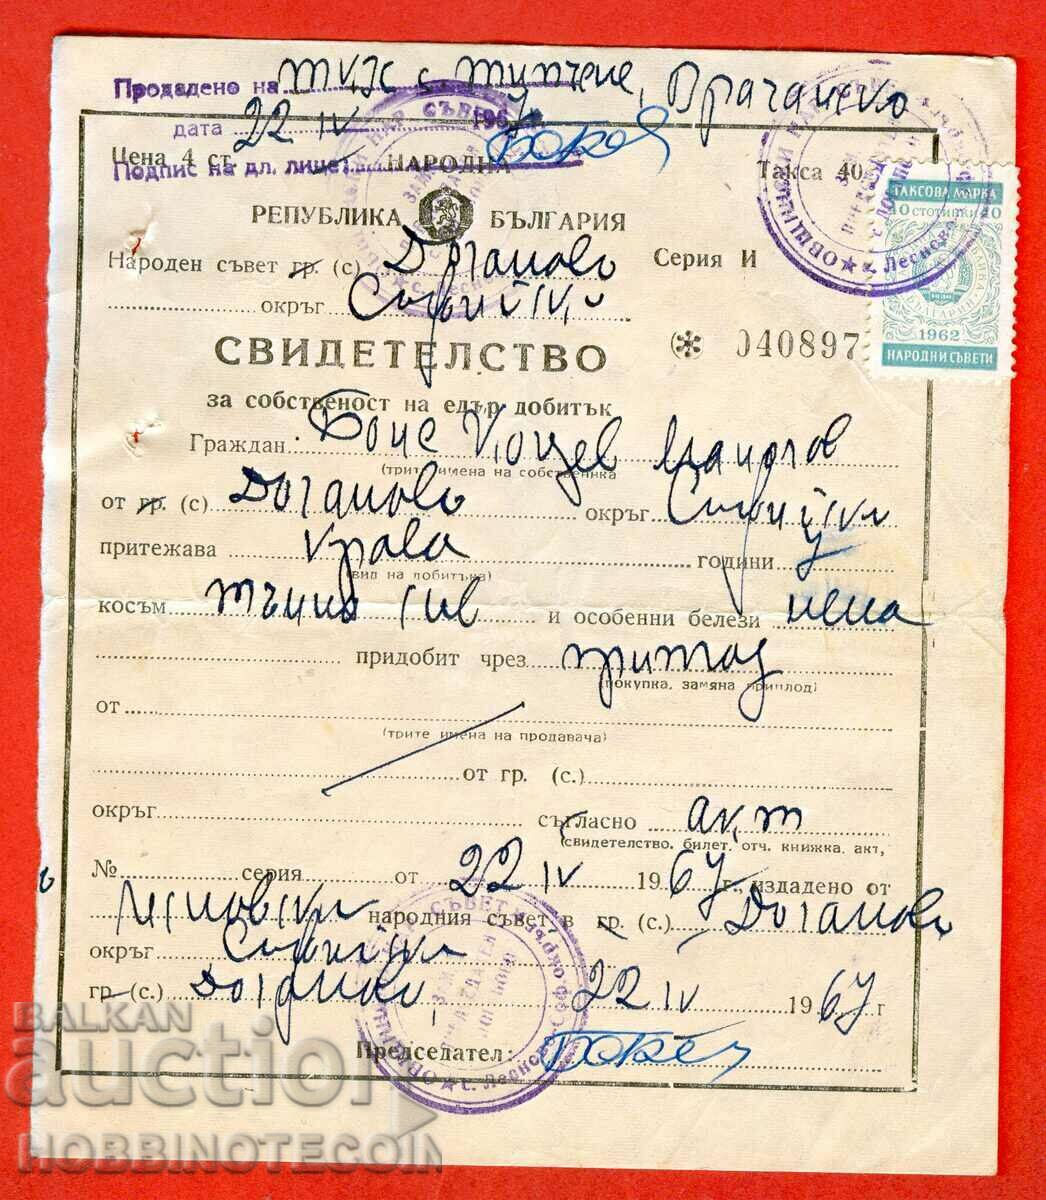 Продадено на ТКЗС с Типчене, Врачанско
дата 22 IV 1967
Цена 4 ст. НАРОДНА Такса 40
Подпис на дл. лицет.
РЕПУБЛИКА БЪЛГАРИЯ
Народен съвет гр. (с) Доганово Серия И
окръг Софийски
СВИДЕТЕЛСТВО 040897
за собственост на едър добитък
ТАКСОВА МАРКА
10 СТОТИНКИ 10
1962
НАРОДНИ СЪВЕТИ
Граждан Боне Коцев
(трите имена на собственика
от гр. (с) Доганово окръг Софийски
притежава крава години
(вид на добитъка)
косъм тъмно сив и особенни белези нема
придобит чрез приплод
(покупка, замяна приплод)
от
(трите имена на продавача)
от гр. (с.)
окръг съгласно акт
(свидетелство, билет, отч. книжка, акт,
№ серия от 22 IV 1967 г., издадено от
Лесновски народния съвет в гр. (с.) Доганово
окръг Софийски
гр. (с.) Доганово, 22 IV 1967 г
Председател:
с. Лесново
BALKAN
auction
HOBBINOTECOIN